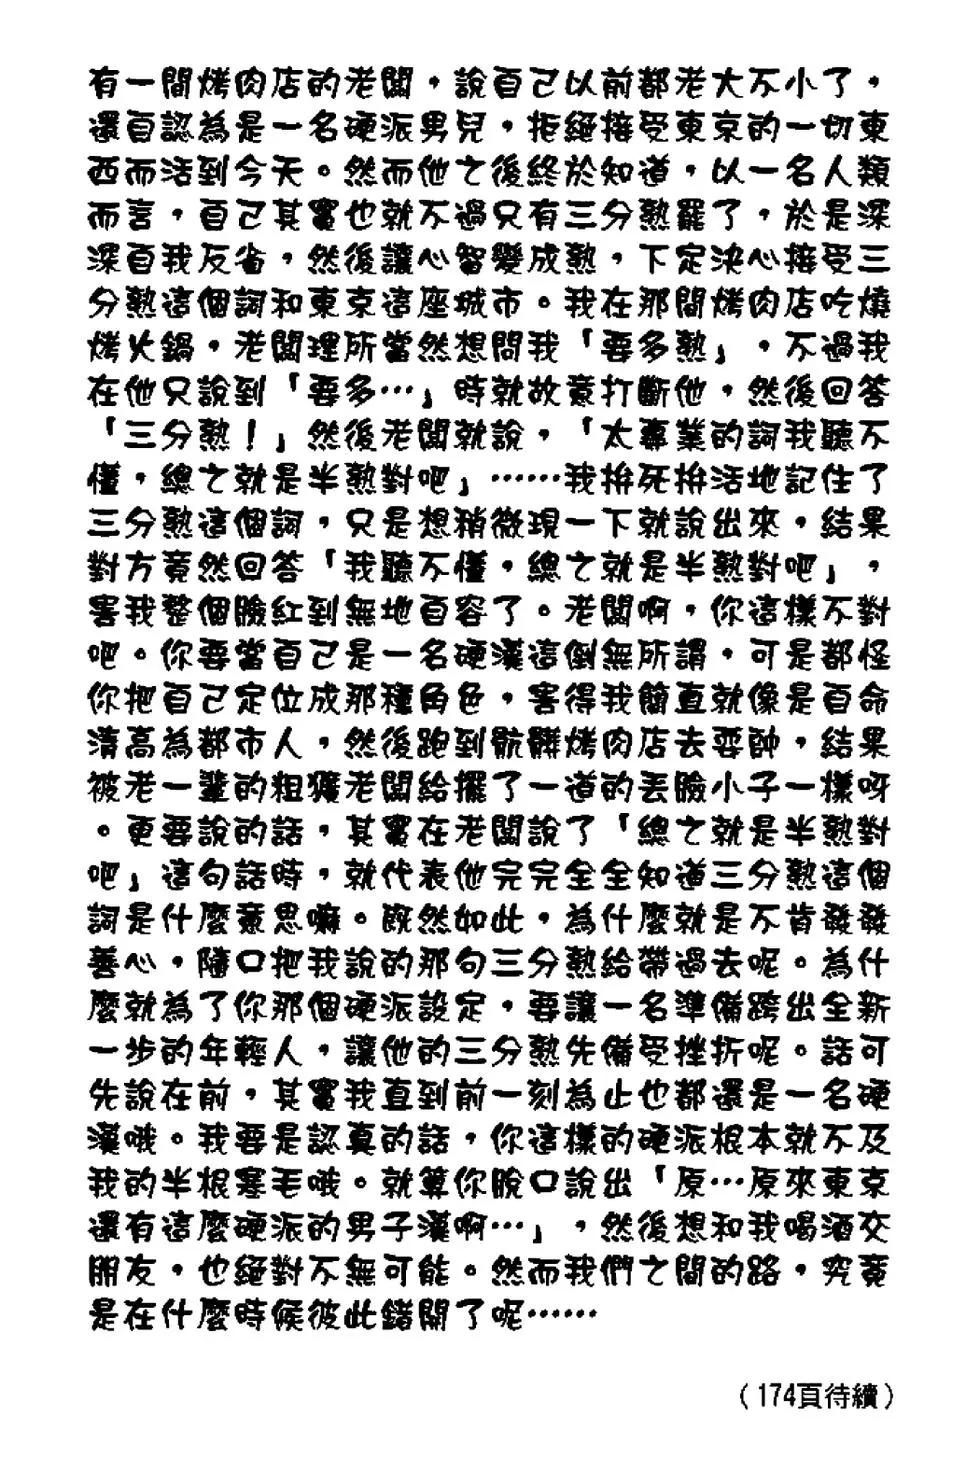 有一間烤肉店的老闆，說自己以前都老大不小了，
還自認為是一名硬派男兒，拒絕接受東京的一切東
西而活到今天。然而他之後終於知道，以一名人類
而言，自己其實也就不過只有三分熟罷了，於是深
深自我反省，然後讓心智變成熟，下定決心接受三
分熟這個詞和東京這座城市。我在那間烤肉店吃燒
烤火鍋，老闆理所當然想問我「要多熟」，不過我
在他只說到「要多…」時就故意打斷他，然後回答
「三分熟！」然後老闆就說，「太專業的詞我聽不
懂，總之就是半熟對吧」……我拚死拚活地記住了
三分熟這個詞，只是想稍微現一下就說出來，結果
對方竟然回答「我聽不懂，總之就是半熟對吧」，
害我整個臉紅到無地自容了。老闆啊，你這樣不對
吧。你要當自己是一名硬漢這倒無所謂，可是都怪
你把自己定位成那種角色，害得我簡直就像是自命
清高為都市人，然後跑到骯髒烤肉店去耍帥，結果
被老一輩的粗獷老闆給擺了一道的丟臉小子一樣呀
。更要說的話，其實在老闆說了「總之就是半熟對
吧」這句話時，就代表他完完全全知道三分熟這個
詞是什麼意思嘛。既然如此，為什麼就是不肯發發
善心，隨口把我說的那句三分熟給帶過去呢。為什
麼就為了你那個硬派設定，要讓一名準備跨出全新
一步的年輕人，讓他的三分熟先備受挫折呢。話可
先說在前，其實我直到前一刻為止也都還是一名硬
漢哦。我要是認真的話，你這樣的硬派根本就不及
我的半根寒毛哦。就算你脫口說出「原…原來東京
還有這麼硬派的男子漢啊…」，然後想和我喝酒交
朋友，也絕對不無可能。然而我們之間的路，究竟
是在什麼時候彼此錯開了呢……
（174頁待續）